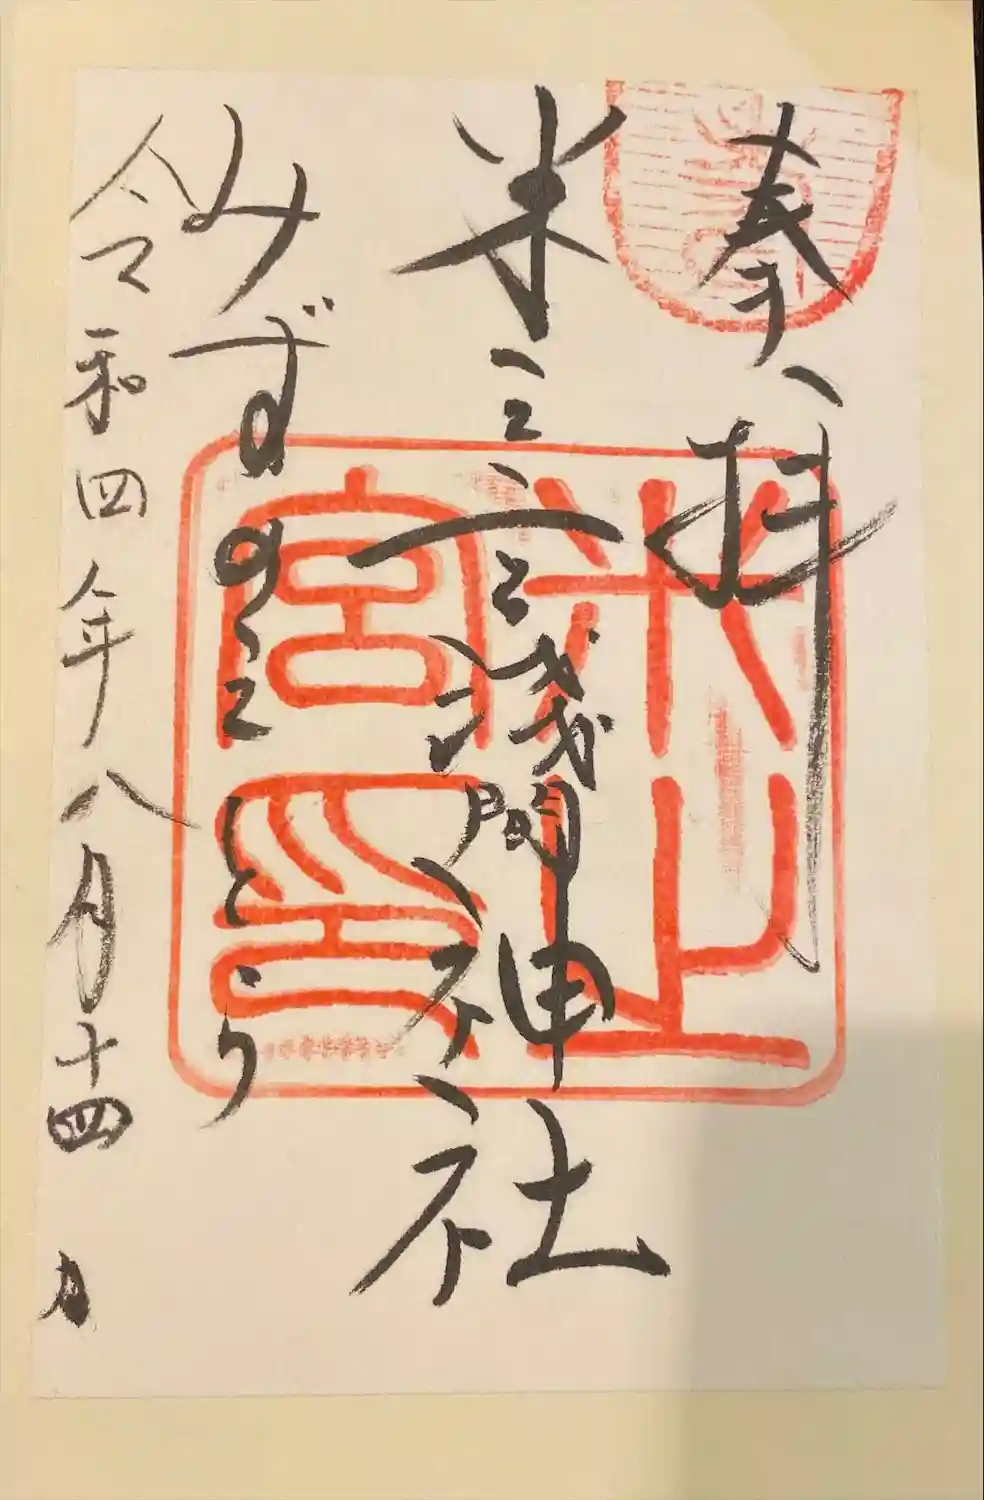 奉拝
米之宮浅間神社
みずのえとら
令和四年八月十四日
米之
宮印